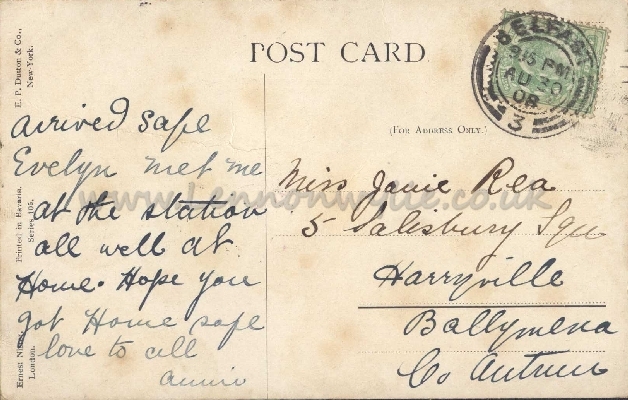 POST CARD.
(FOR ADDRESS ONLY.)
BELFAST
8.15 PM
AU 20
08
3
E. P. Dutton & Co.,
New-York.
Printed in Bavaria.
Series 105.
Ernest Nister,
London.
www.lennonwylie.co.uk
arrived safe
Evelyn met me
at the station
all well at
Home. Hope you
got Home safe
love to all
annie
Miss Janie Rea
5 Salisbury Squ
Harryville
Ballymena
Co Antrim